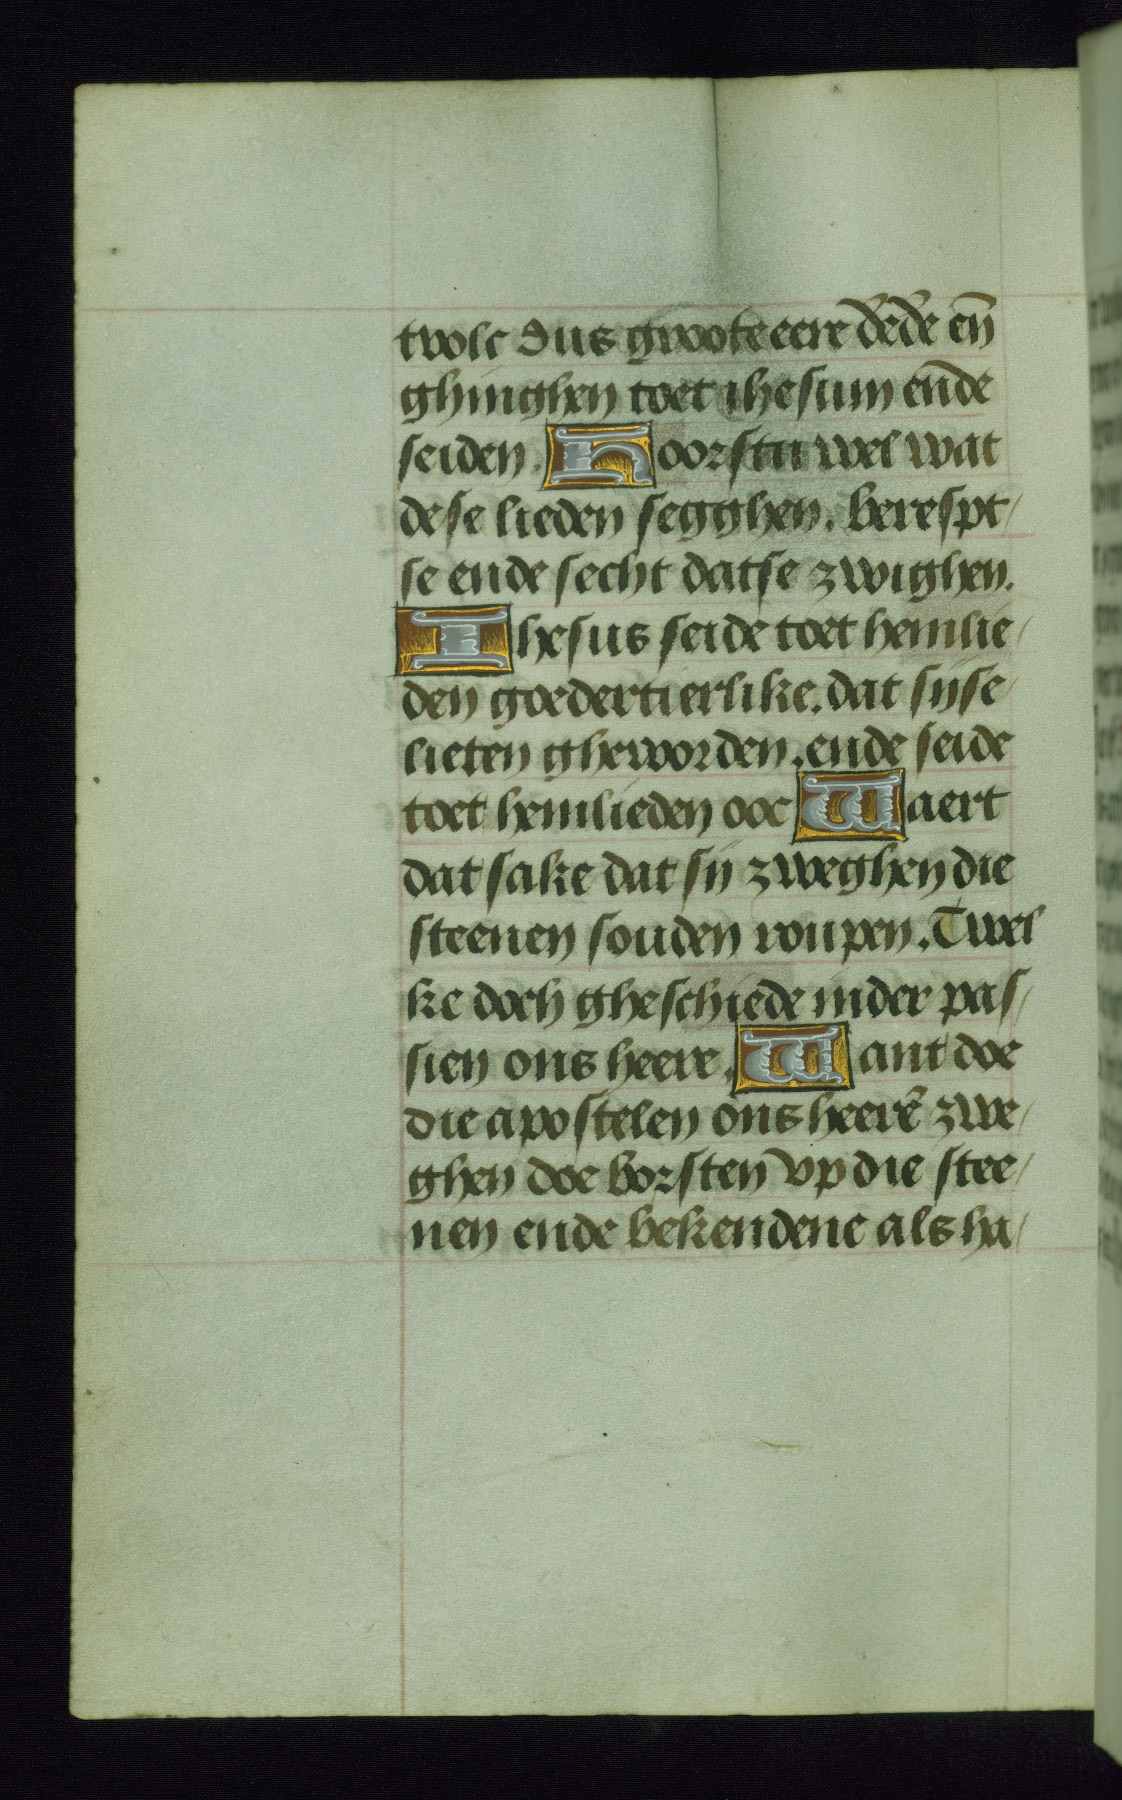 tvolc dus groote eere dēdē eñ
ghinghen toet ihesum ende
seiden. Hoorstu wel wat
dese lieden segghen. berespt/
se ende secht datse zwighen.
Ihesus seide toet hemlie/
den goedertierlike. dat sijse
lieten gheworden. ende seide
toet hemlieden ooc Waert
dat sake dat sij zweghen die
steenen souden roupen. Twel
ke doch gheschiede inder pas/
sien ons heere. Want doe
die apostelen ons heerē zwe/
ghen doe borsten vp die stee/
nen ende bekendene als ha/